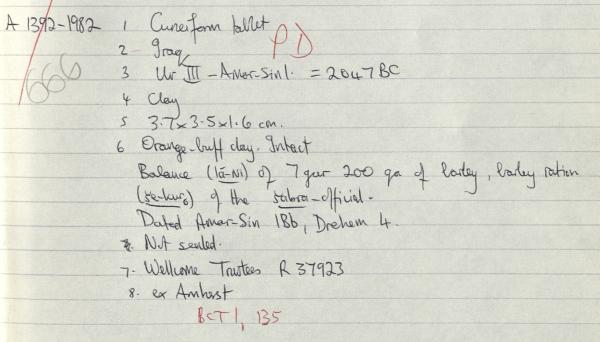 A 1392-1982 1 Cuneiform tablet
PD
666
2 Iraq
3 Ur III - Amar-Sin 1. = 2047 BC
4 Clay
5 3.7 x 3.5 x 1.6 cm.
6 Orange-buff clay. Intact
Balance (lá-NI) of 7 gur 200 qa of barley, barley ration
(še-kur6) of the šabra-official.
Dated Amar-Sin 1Bb, Drehem 4.
Not sealed.
7. Wellcome Trustees R 37923
8. ex Amherst
BCT 1, 135